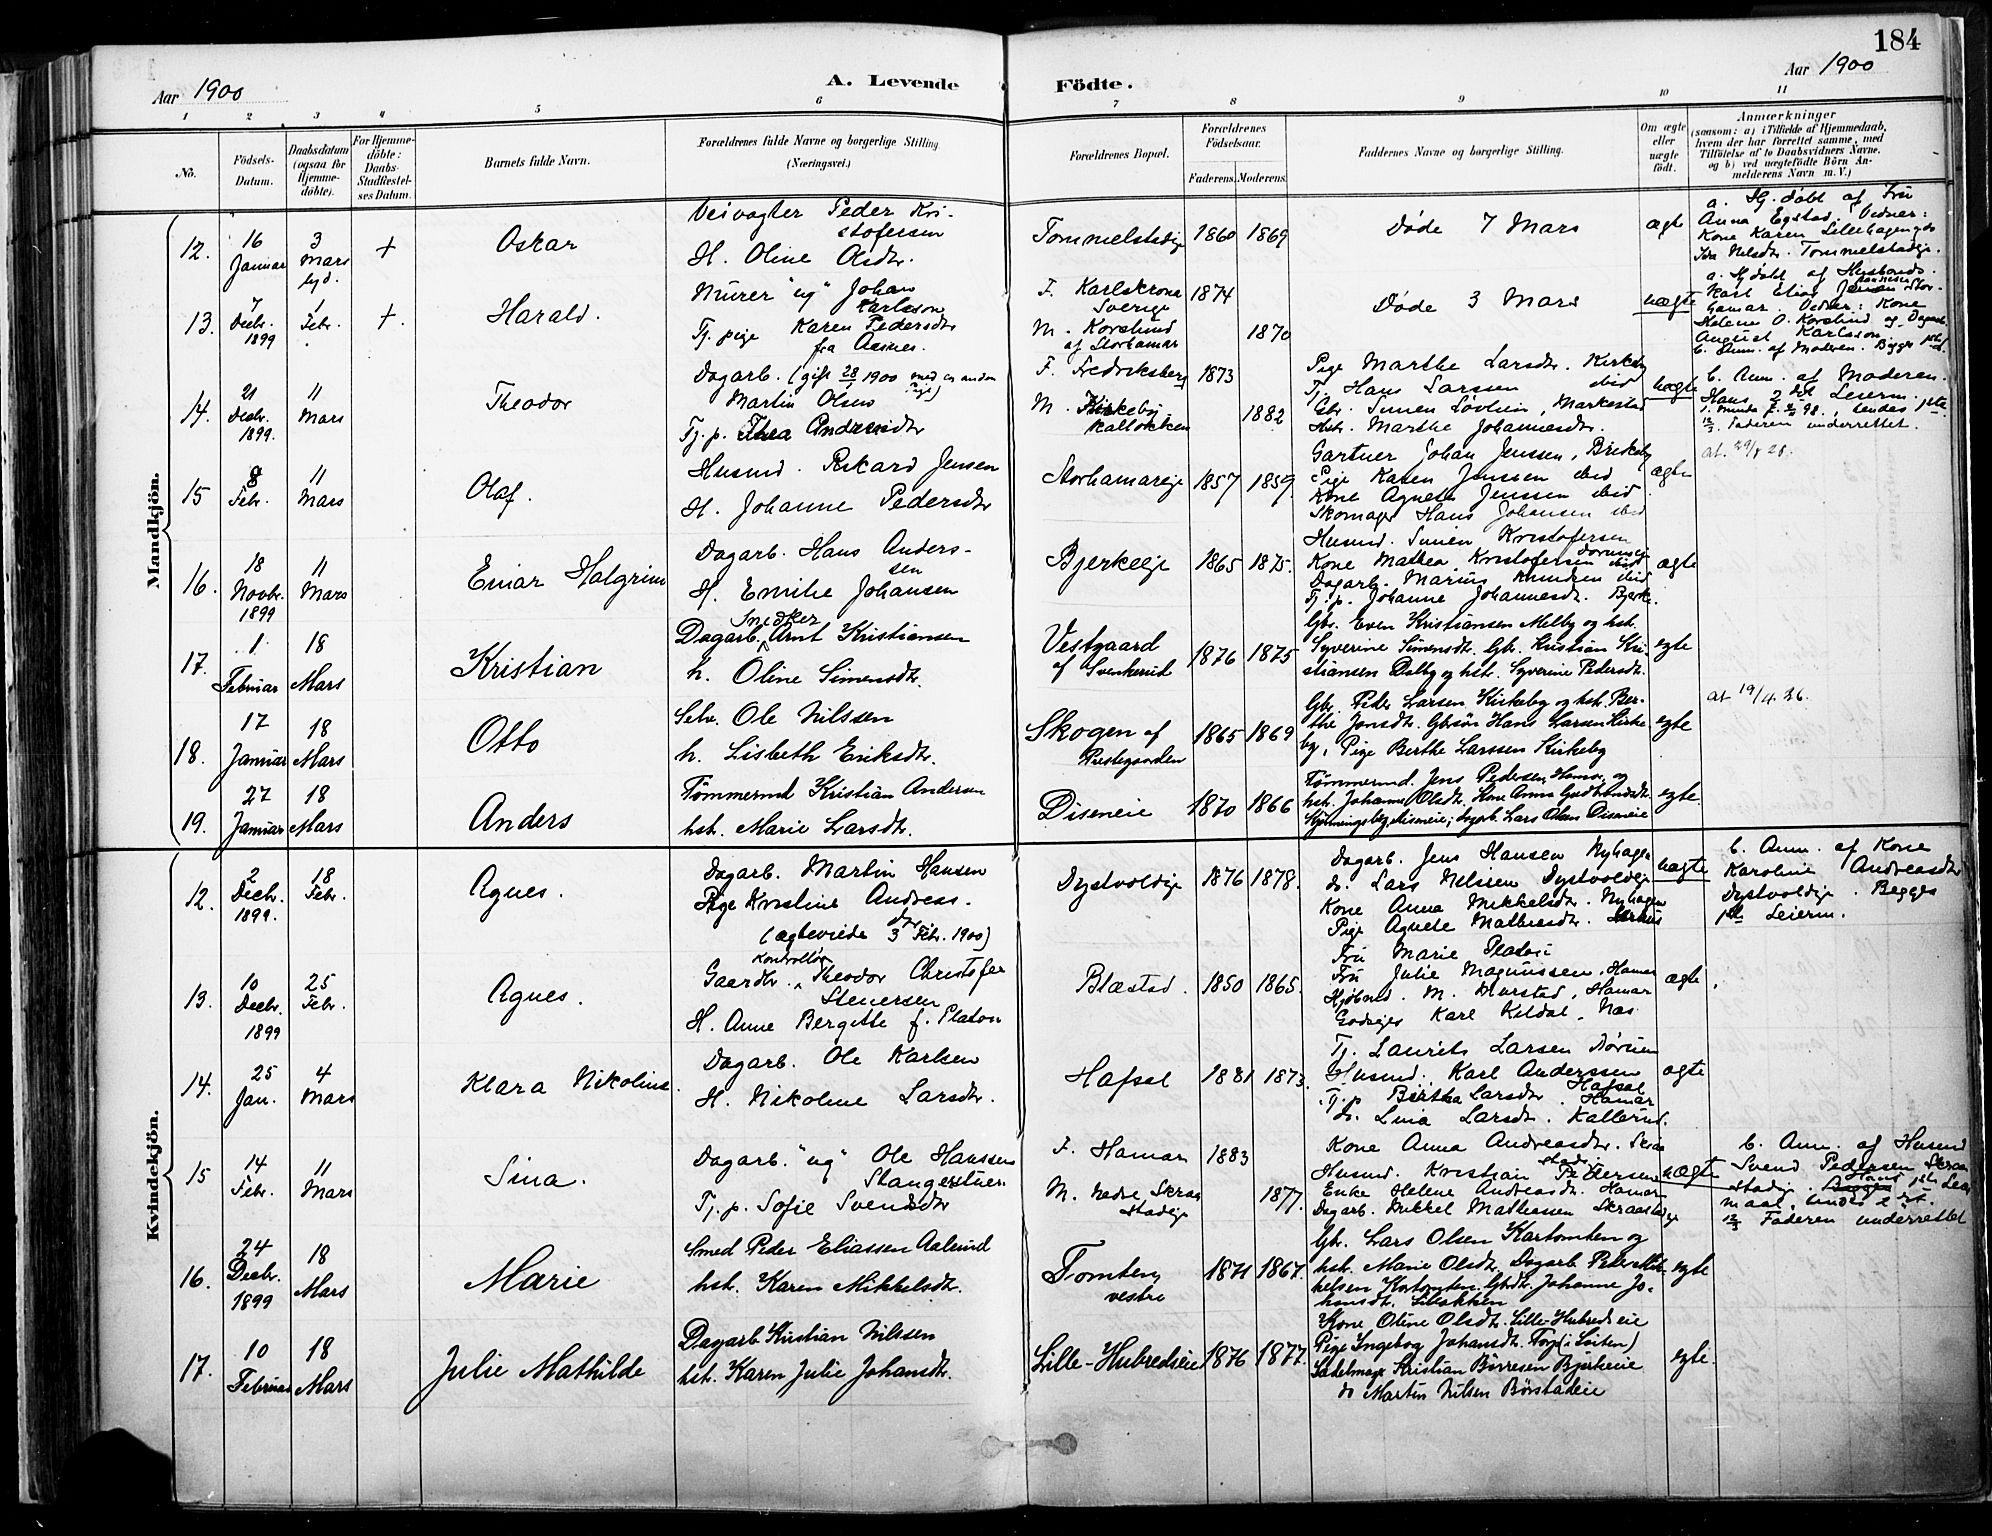 184
Aar 1900
A. Levende
Födte.
Aar 1900
1 2 3 4 5 6 7 8 9 10 11
No.
Födsels-
Datum.
Daabsdatum
(ogsaa för
Hjemme-
döbte).
For Hjemme-
döbte:
Daabs-
Stadfæstel-
ses Datum.
Barnets fulde Navn.
Forældrenes fulde Navne og borgerlige Stilling
(Næringsvei.)
Forældrenes Bopæl.
Forældrenes
Födselsaar.
Faderens. Moderens.
Faddernes Navne og borgerlige Stilling.
Om ægte
eller
uægte
födt.
Anmærkninger
(saasom: a) i Tilfælde af Hjemmedaab,
hvem der har forrettet samme, med
Tilföielse af to Daabsvidners Navne,
og b) ved uægtefödte Börn An-
melderens Navn m. V.)
Mandkjön.
12.
16
Januar
3
Mars
+
Oskar
Veivagter Peder Kri-
stofersen
H. Oline Olsdtr.
Tommelstadeje
1860 1869
Døde 7 Mars
ægte
a. Hj. døbt af Fru
Anna Egstad. Vidner:
Kone Karen Lillehagen og
Nilsdtr. Tommelstadeje.
13.
7
Decbr.
1899
1
Febr.
+.
Harald.
Murer "ug" Johan
Karlsson
Tj. pige Karen Pedersdtr
fra Aasnes.
F. Karlskrona
Sverige
M. Korslund
af Storhamar
1874
1870
Døde 3 Mars
uægte
a. Hj. døbt af Husbonds.
Karl Elias
hamar. Vidner: Kone
Helene O. Korslund og Dagarb.
August Karlsson
b. Anm. af Moderen. Begges 1ste
14.
21
Decbr.
1899.
11
Mars
Theodor
Dagarb. (gift 28/1 1900 med en anden
Pige)
Martin Olsen
Tj. p. Thea Andersdtr
F. Fredriksberg
M. Kirkeby-
kalløkken
1873
1882
Pige Marthe Larsdtr. Kirkeby
Tj. Hans Larssen ibid
Gbr. Simen Løvlien, Markestad
Hstr. Marthe Johannesdtr.
uægte
b. Anm. af Moderen.
Hans 2det Leierm.
hendes 1ste
12/3 Faderen underrettet.
15
8
Febr.
11
Mars
Olaf.
Husmd. Rikard Jensen
H. Johanne Pedersdtr
Storhamareje
1857 1859.
Gartner Johan Jenssen, Birkeby
Pige Karen Jenssen ibid
Kone Agnete Jenssen ibid
Skomager Hans Johansen ibid
ægte
at. 29/8 28.
16.
18
Novbr.
1899
11
Mars
Einar Halgrim
Dagarb. Hans Anders-
sen
H. Emilie Johansen
Bjerkeeje
1865 1875.
Husmd. Simen Kristofersen
Kone Mathea Kristofersen ibid
Dagarb. Marius Knudsen ibid
Tj. p. Johanne Johannesdtr. Bjerke.
ægte
17.
1
Februar
18
Mars
Kristian
Snedker
Dagarb. Arnt Kristiansen
h. Oline Simensdtr.
Vestgaard
af Svenkerud
1876 1875
Gbr. Even Kristiansen Melby og hst.
Syverine Simensdtr. Gbr. Kristian Kri-
stiansen Dalby og hst. Syverine Pedersdtr.
egte
18.
17
Januar
18
Mars
Otto
Selv. Ole Nilssen
h. Lisbeth Eriksdtr.
Skogen af
Prestegaarden
1865 1869
Gbr. Peder Larsen Kirkeby og hst. Ber-
the Jonsdtr. Gbrsøn Hans Larsen Kirke
by, Pige Berthe Larssen Kirkeby
egte
at 19/4. 26.
19.
27
Januar
18
Mars
Anders
Tömmermd Kristian Andersen
hst. Marie Larsdtr.
Diseneie
1870 1866
Tömmermd. Jens Pedersen, Hamar og
hst. Johanne Olsdtr. Kone Anna Gudbrandsdtr.
Diseneie; Dagarb. Lars Olsen Diseneie
egte.
Kvindekjön.
12.
2
Decbr.
1899.
18
Febr.
Agnes.
Dagarb. Martin Hansen
Pige Kristine Andreas-
dtr
(ægteviede 3 Febr. 1900)
Dystvoldeje
1876 1878.
Dagarb. Jens Hansen Nyhagen
do. Lars Nilssen Dystvoldeje
Kone Anna Mikkelsdtr. Nyhagen
Pige Agnete Mathiasdtr.
uægte
b. Anm. af Kone
Karoline Andreasdtr
Dystvoldeje. Begges
1ste Leierm.
13.
10
Decbr.
1899
25
Febr.
Agnes.
kontrollør
Gaardbr. Theodor Christofer
Stenersen
H. Anne Bergitte f. Platou
Blæstad.
1850 1865.
Fru Marie Platou
Fru Julie Magnussen, Hamar
Kjøbmd. M. Murstad, Hamar
Godsejer Karl Kildal, Næs
ægte.
14.
25
Jan.
4
Mars
Klara Nikoline.
Dagarb. Ole Karlsen
H. Nikoline Larsdtr.
Hafsal
1881 1873.
Tj. Laurits Larsen Dørum
Husmd. Karl Anderssen
Hafsal
Tj. p Bertha Larsdtr. Hamar
do. Lina Larsdtr. Kallerud.
ægte
15
14
Febr.
11
Mars
Sina.
Dagarb. "ug" Ole Hanssen
Stangestuen
Tj. p. Sofie Svendsdtr
F. Hamar
M. Nedre Skraa
stadeje
1883
1877.
Kone Anna Andreasdtr. Skraa
stadeje
Husmd. Kristian Pedersen
Enke Helene Andreasdtr. Hamar
Dagarb. Mikkel Mathiassen Skraastadeje
uægte
b. Anm. af Husmd
Svend Pedersen Skraa
stadeje. Hans 1ste Leier
maal, hendes 2det.
12/3 Faderen underrettet
16.
24
Decbr.
1899
18
Mars
Marie
Smed Peder Eliassen Aalund
hst. Karen Mikkelsdtr.
Tomten
vestre
1871 1867.
Gbr. Lars Olsen Kartomten og
hst. Marie Olsdtr. Dagarb Peder Mik-
kelsen Kartomten. Gbdtr. Johanne Jo-
hansdtr. Lilløkken
egte
17.
10
Februar
18
Mars
Julie Mathilde
Dagarb Kristian Nilssen
hst. Karen Julie Johansdtr.
Lille-Hubredseie
1876 1877.
Kone Oline Olsdtr. Lille-Hubredseie
Pige Ingeborg Johansdtr. Torp i Løiten)
Sadelmager Kristian Børresen Bjerkeeie
do Martin Nilsen Børstadeie
egte.